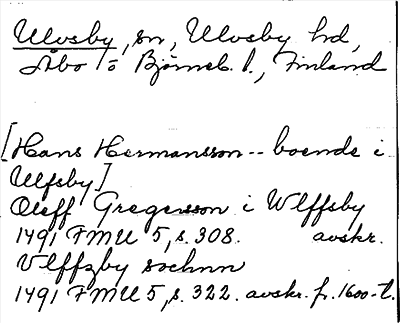 Ulvsby, sn, Ulvsby hd,
Åbo o Björneb. l., Finland
[Hans Hermansson -- boende i
Ulfsby]
Oleff Gregersson i Wlffsby
1491 FMU 5, s. 308. avskr.
Vlffzby sochnn
1491 FMU 5, s. 322. avskr. fr. 1600-t.